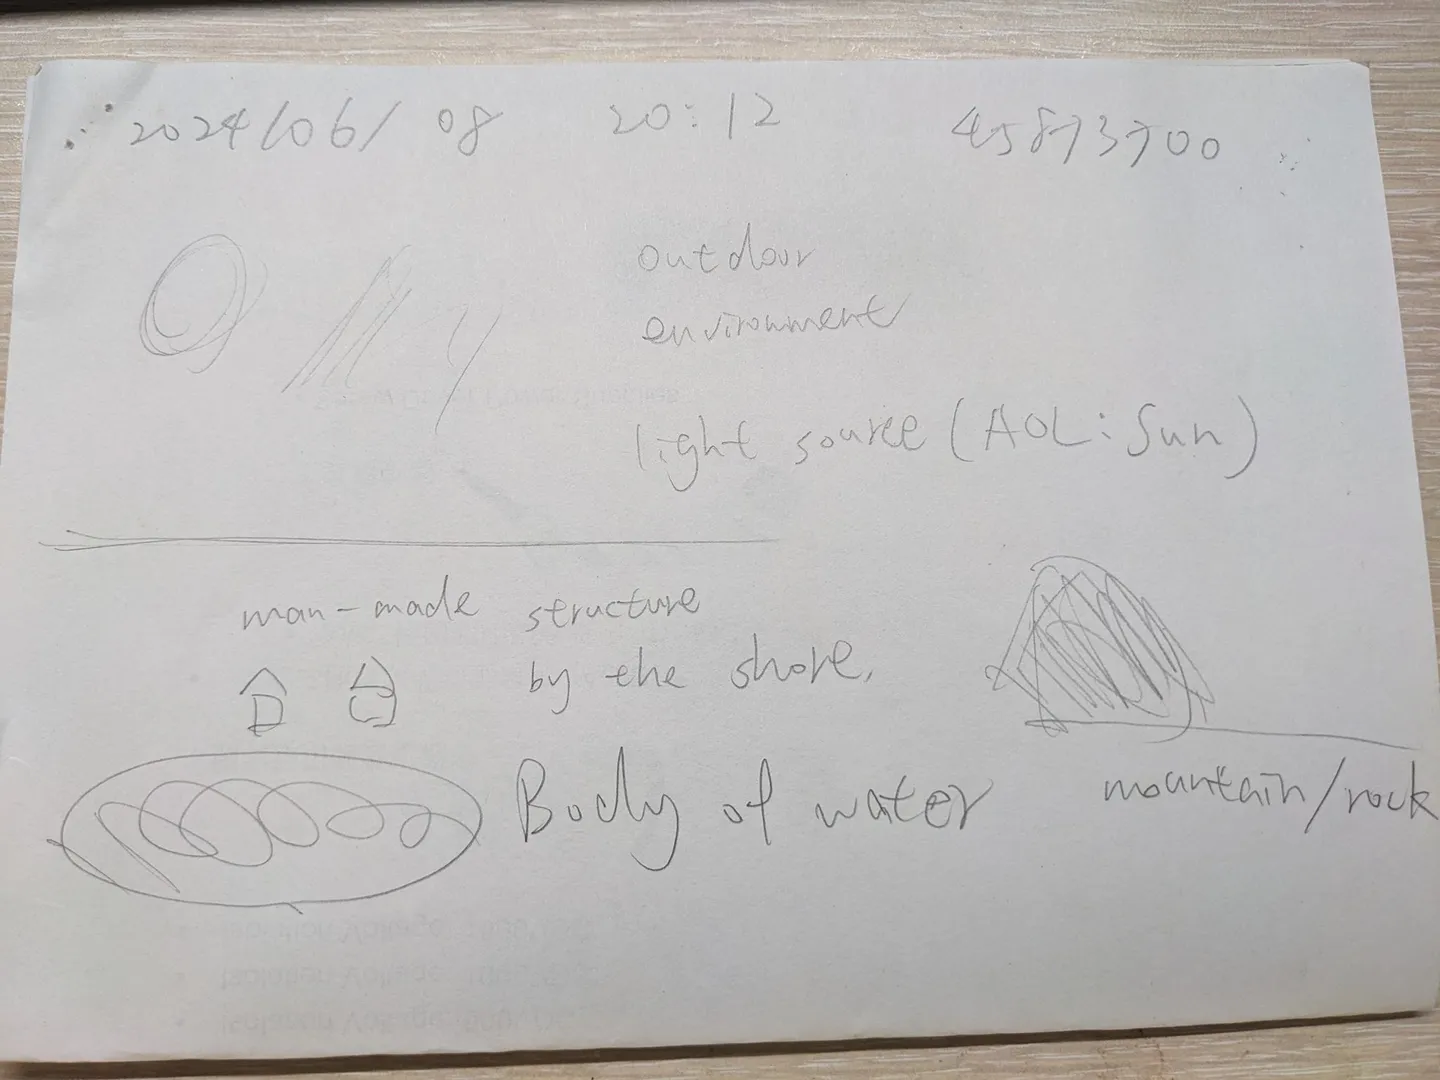 2024/06/08 20:12 45873700
outdoor
environment
light source (AOL: Sun)
man-made structure
by the shore.
Body of water
mountain/rock